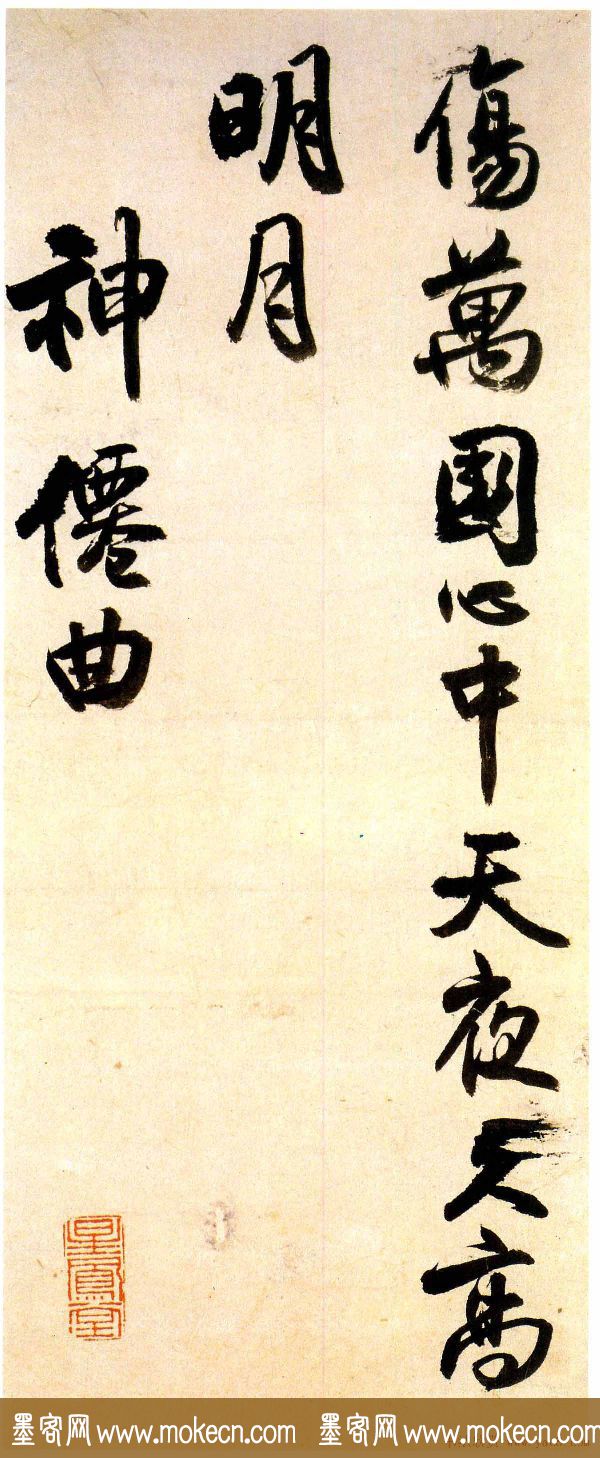 傷萬國心中天夜久高
明月
神僊曲
墨客网 www.mokecn.com 墨客网 www.mokecn.com